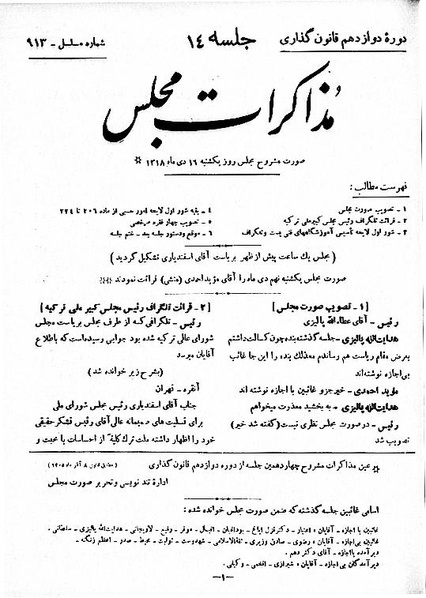 دورهٔ دوازدهم قانون گذاری
جلسه ۱۴
شماره مسلسل - ۹۱۳
مذاکرات مجلس
صورت مشروح مجلس روز یکشنبه ۱۶ دی ماه ۱۳۱۸ *
فهرست مطالب :
۱ - تصویب صورت مجلس
۲ - قرائت تلگراف رئیس مجلس کبیر ملی ترکیه
۳ - شور اول لایحه تأسیس آموزشگاههای فنی پست و تلگراف
۴ - بقیه شور اول لایحه امور حسبی از ماده ۲۰۶ تا ۲۲۴
۵ - تصویب چهار فقره مرخصی
۶ - موقع و دستور جلسه بعد - ختم جلسه
( مجلس یک ساعت پیش از ظهر بریاست آقای اسفندیاری تشکیل گردید )
صورت مجلس یکشنبه نهم دی ماه را آقای مؤید احدی (منشی) قرائت نمودند
[ ۱ - تصویب صورت مجلس ]
رئیس - آقای عطاءالله پالیزی
هدایت‌الله پالیزی - جلسه گذشته بنده چون کسالت داشتم
بعرض مقام ریاست هم رساندم معذلک بنده را این جا غائب
بی‌اجازه نوشته‌اند
مؤید احمدی - خیر جزو غائبین با اجازه نوشته اند
هدایت‌الله پالیزی - به بخشید معذرت میخواهم
رئیس - در صورت مجلس نظری نیست (گفته شد خیر)
تصویب شد
[ ۲ - قرائت تلگراف رئیس مجلس کبیر ملی ترکیه ]
رئیس - تلگرافی که از طرف مجلس بریاست مجلس
شورای عالی ترکیه شده بود جوابی رسیده‌است که باطلاع
آقایان میرسد
( بشرح زیر خوانده شد )
آنقره - تهران
جناب آقای اسفندیاری رئیس مجلس شورای ملی
برای تسلیت های صمیمانه عالی آقای رئیس تشکر حقیقی
خود را اظهار داشته ملت ترک کلیه از احساسات با محبت و
عین مذاکرات مشروح چهاردهمین جلسه از دوره دوازدهم قانون گذاری
اداره تند نویسی و تحریر صورت مجلس
اسامی غائبین جلسه گذشته که ضمن صورت مجلس خوانده شده :
غائبین با اجازه - آقایان : اعتبار - دکتر قزل ایاغ -
غائبین بی‌اجازه - آقایان :
دیر آمده با اجازه - آقای دکتر
دیر آمدگان بی‌اجازه - آقایان : شیرازی - افخمی - وکیلی .
- ۱ -